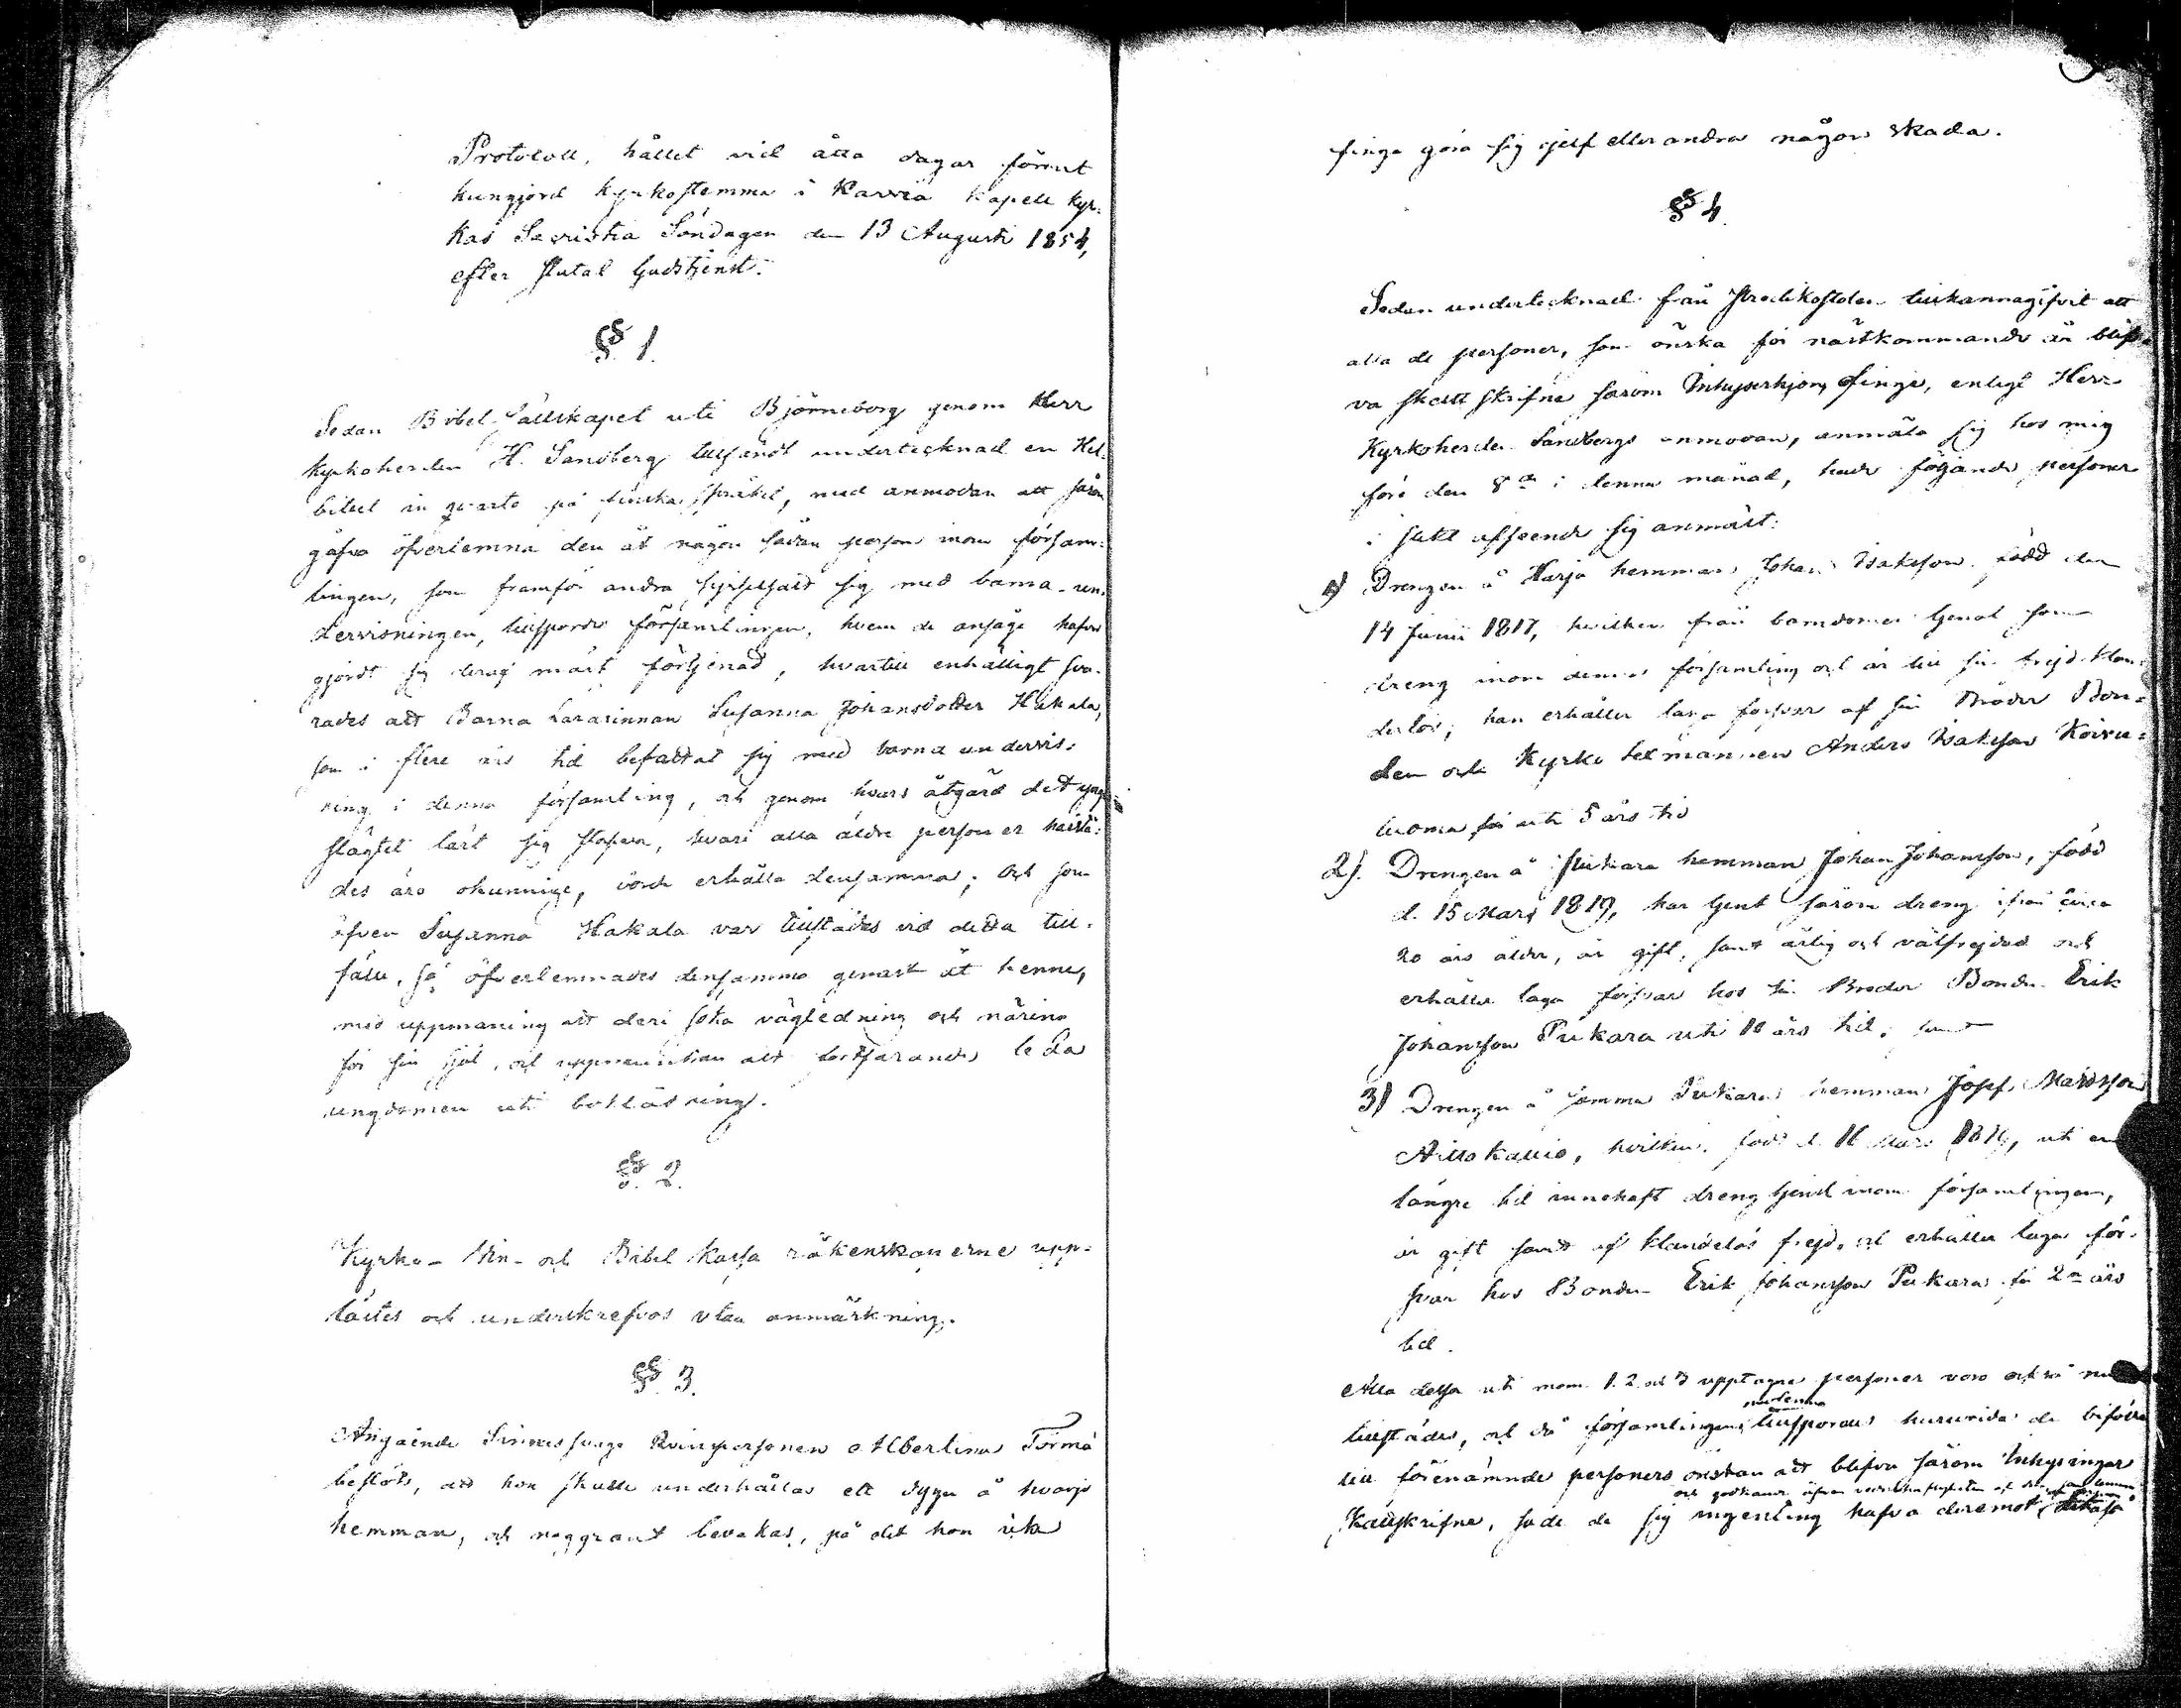 Protocoll, hållet vid åtta dagar förrut
kungjord kyrkostemma i Karvia Kapell kyr-
kas Sacristia Söndagen den 13 Augusti 1854,
efter slutad Gudstjenst.
§ 1.
Sedan Bibel-Sällskapet uti Björneborg genom Herr
Kyrkoherden H. Sandberg tillsändt undertecknad en Hel.
bibel in quarto på finska språket, med anmodan att såsom
gåfva öfverlemna den åt någon sådan person inom försam-
lingen, som framför andra sysselsatt sig med barna-un-
dervisningen, tillspordes församlingen, hvem de ansåge hafva
gjordt sig deraf mäst förtjenad, hvartill enhälligt sva-
rades att Barna Lärarinnan Susanna Johansdotter Hakala,
som i flere års tid befattat sig med barna undervis-
ning i denna församling, och genom hvars åtgärd det yngre
slägtet lärt sig stafva, hvari alla äldre personer
des äro okunnige, borde erhålla densamma; och som
äfven Susanna Hakala var tillstädes vid detta till-
fälle, så öfverlemnades densamma genast åt henne,
med uppmaning att deri söka vägledning och näring
för sin själ, och uppmuntran att fortfarande leda
ungdomen uti bokläsning.
§. 2.
Kyrko- Vin- och Bibel Kassa räkenskaperne upp-
lästes och underskrefvos utan anmärkning.
§ 3.
Angående Sinnessvaga Qvinspersonen Albertina Törmä
beslöts, att hon skulle underhållas ett dygn å hvarje
hemman, och noggrant bevakas, på det hon icke
finge göra sig sjelf eller andra någon skada.
§ 4.
Sedan undertecknad från Predikostolen tillkännagifvit att
alla de personer, som önska för nästkommande år blif-
va skattskrifne såsom Inhyseshjon finge, enligt Herr
Kyrkoherden Sandbergs anmodan, anmäla sig hos mig
före den 8de i denna månad, hade följande personer
i slikt afseende sig anmält:
1) Drengen å Harja hemman Johan Isaksson, född den
14 Junii 1817, hvilken från barndomen tjenat som
dreng inom denna församling och är till sin frejd klan-
derlös; han erhåller laga försvar af sin Broder Bon-
den och Kyrko Sexmannen Anders Isaksson Koivu-
luoma för uti 5 års tid
2). Drengen å Pukara hemman Johan Johansson, född
d. 15 Mars 1819, har tjent såsom dreng ifrån circa
20 års ålder, är gift, samt ärlig och välfrejdad och
erhåller laga försvar hos sin Broder Bonden Erik
Johansson Pukara uti 10 års tid; samt
3) Drengen å samma Pukara hemman Josef Mattsson
Aittokallio, hvilken, född d. 16 Mars, uti en
längre tid innehaft dreng tjenst inom församlingen,
är gift samt af klanderlös frejd, och erhåller laga för-
svar hos Bonden Erik Johansson Pukara för 2ne års
tid.
Alla dessa uti mom. 1. 2. och 3 upptagne personer voro också nu
tillstädes, och då församlingens tillspordes huruvida de biföllo
till förenämnde personers önskan att blifva såsom Inhysingar
och godkände äfven
skattskrifne, sade de sig ingenting hafva deremot